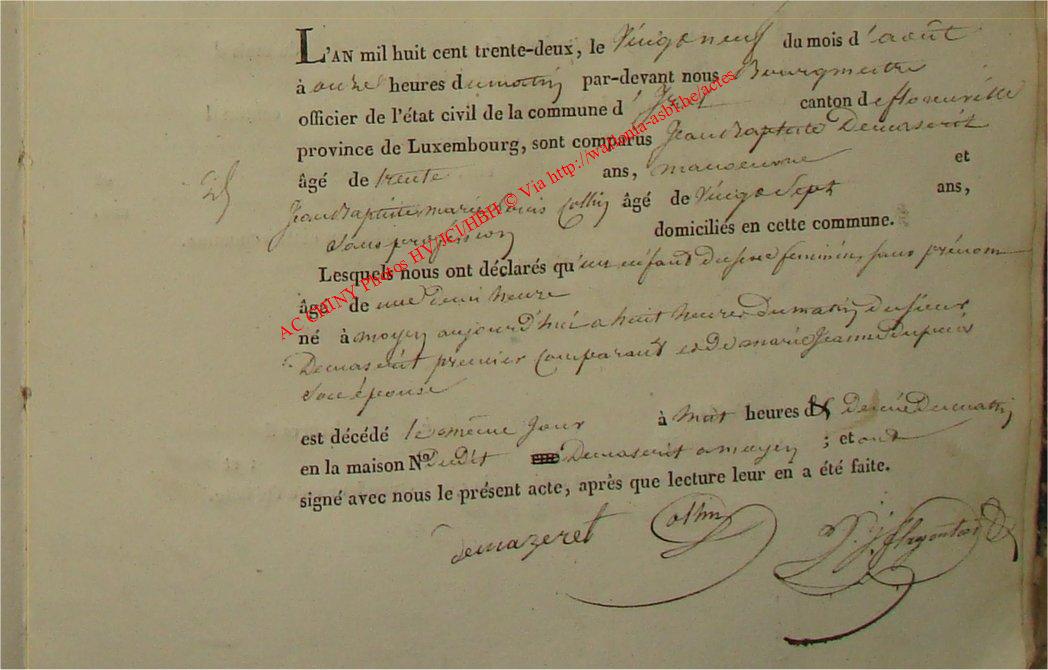 L'AN mil huit cent trente-deux, le Vingt neuf du mois d'août
à onze heures du matin par-devant nous Bourgmeitre
officier de l'état civil de la commune d' canton de florenville
province de Luxembourg, sont comparus Jean Baptiste Demaseret
âgé de trente ans, manoeuvre et
25
Jean Baptiste marie Louis Collin âgé de Vingt Sept ans,
Sans profession domiciliés en cette commune.
Lesquels nous ont déclarés qu'un enfant du sexe feminin, sans prénom
âgé de une demi heure
né à moyen aujourd'hui a huit heures du matin du sieur
Demaseret premier comparant et de marie Jeanne Dupuis
Son épouse
est décédé le même jour à huit heures & demie du matin
en la maison No. dudit Demaseret a moyen ; et ont
signé avec nous le présent acte, après que lecture leur en a été faite.
demazeret Collin
AC CHINY Photos HV/JCI/HBH © Via http://wallonia-asbl.be/actes